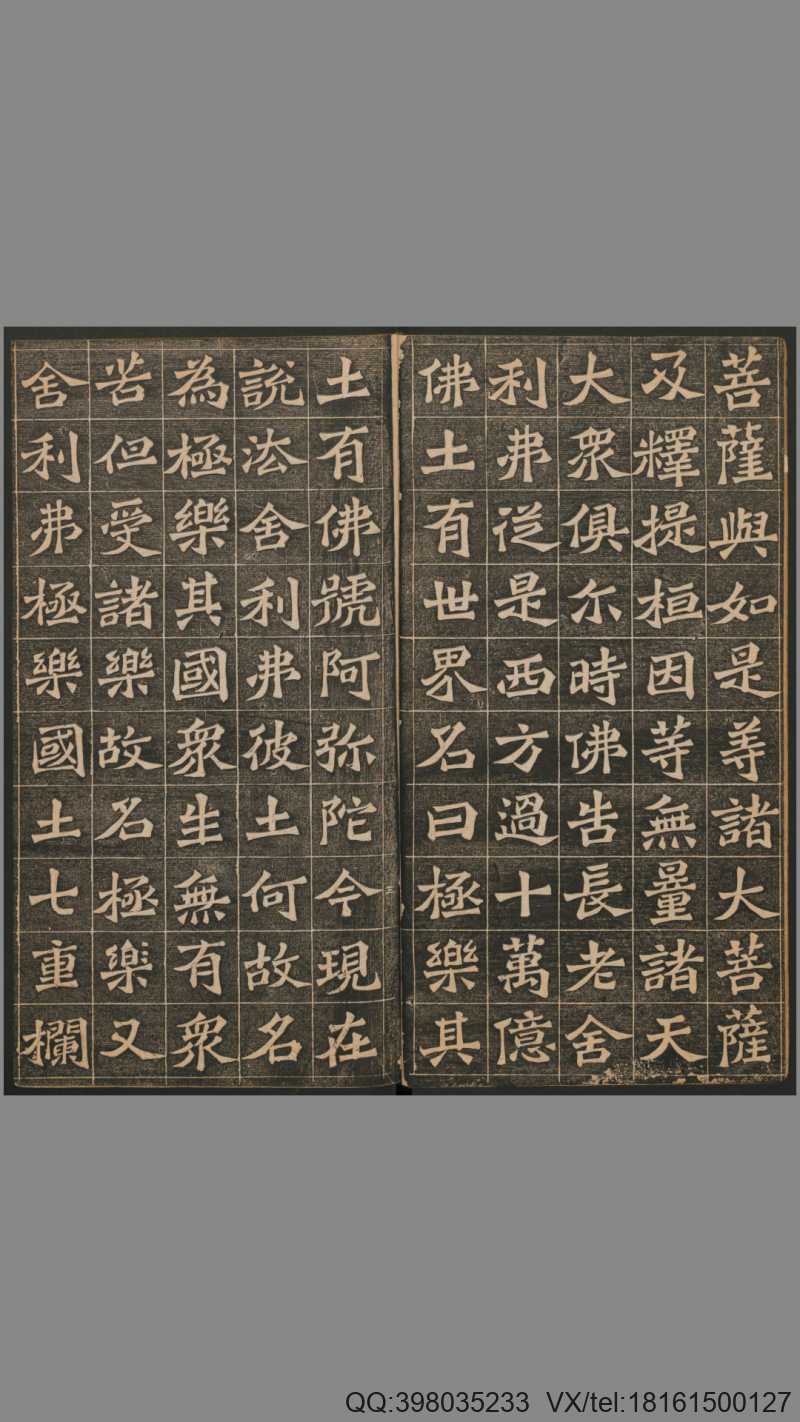 菩薩與如是等諸大菩薩
及釋提桓因等無量諸天
大眾俱尔時佛告長老舍
利弗從是西方過十萬億
佛土有世界名曰極樂其
土有佛號阿弥陀今現在
說法舍利弗彼土何故名
為極樂其國眾生無有眾
苦但受諸樂故名極樂又
舍利弗極樂國土七重欄
QQ:398035233 VX/tel:18161500127